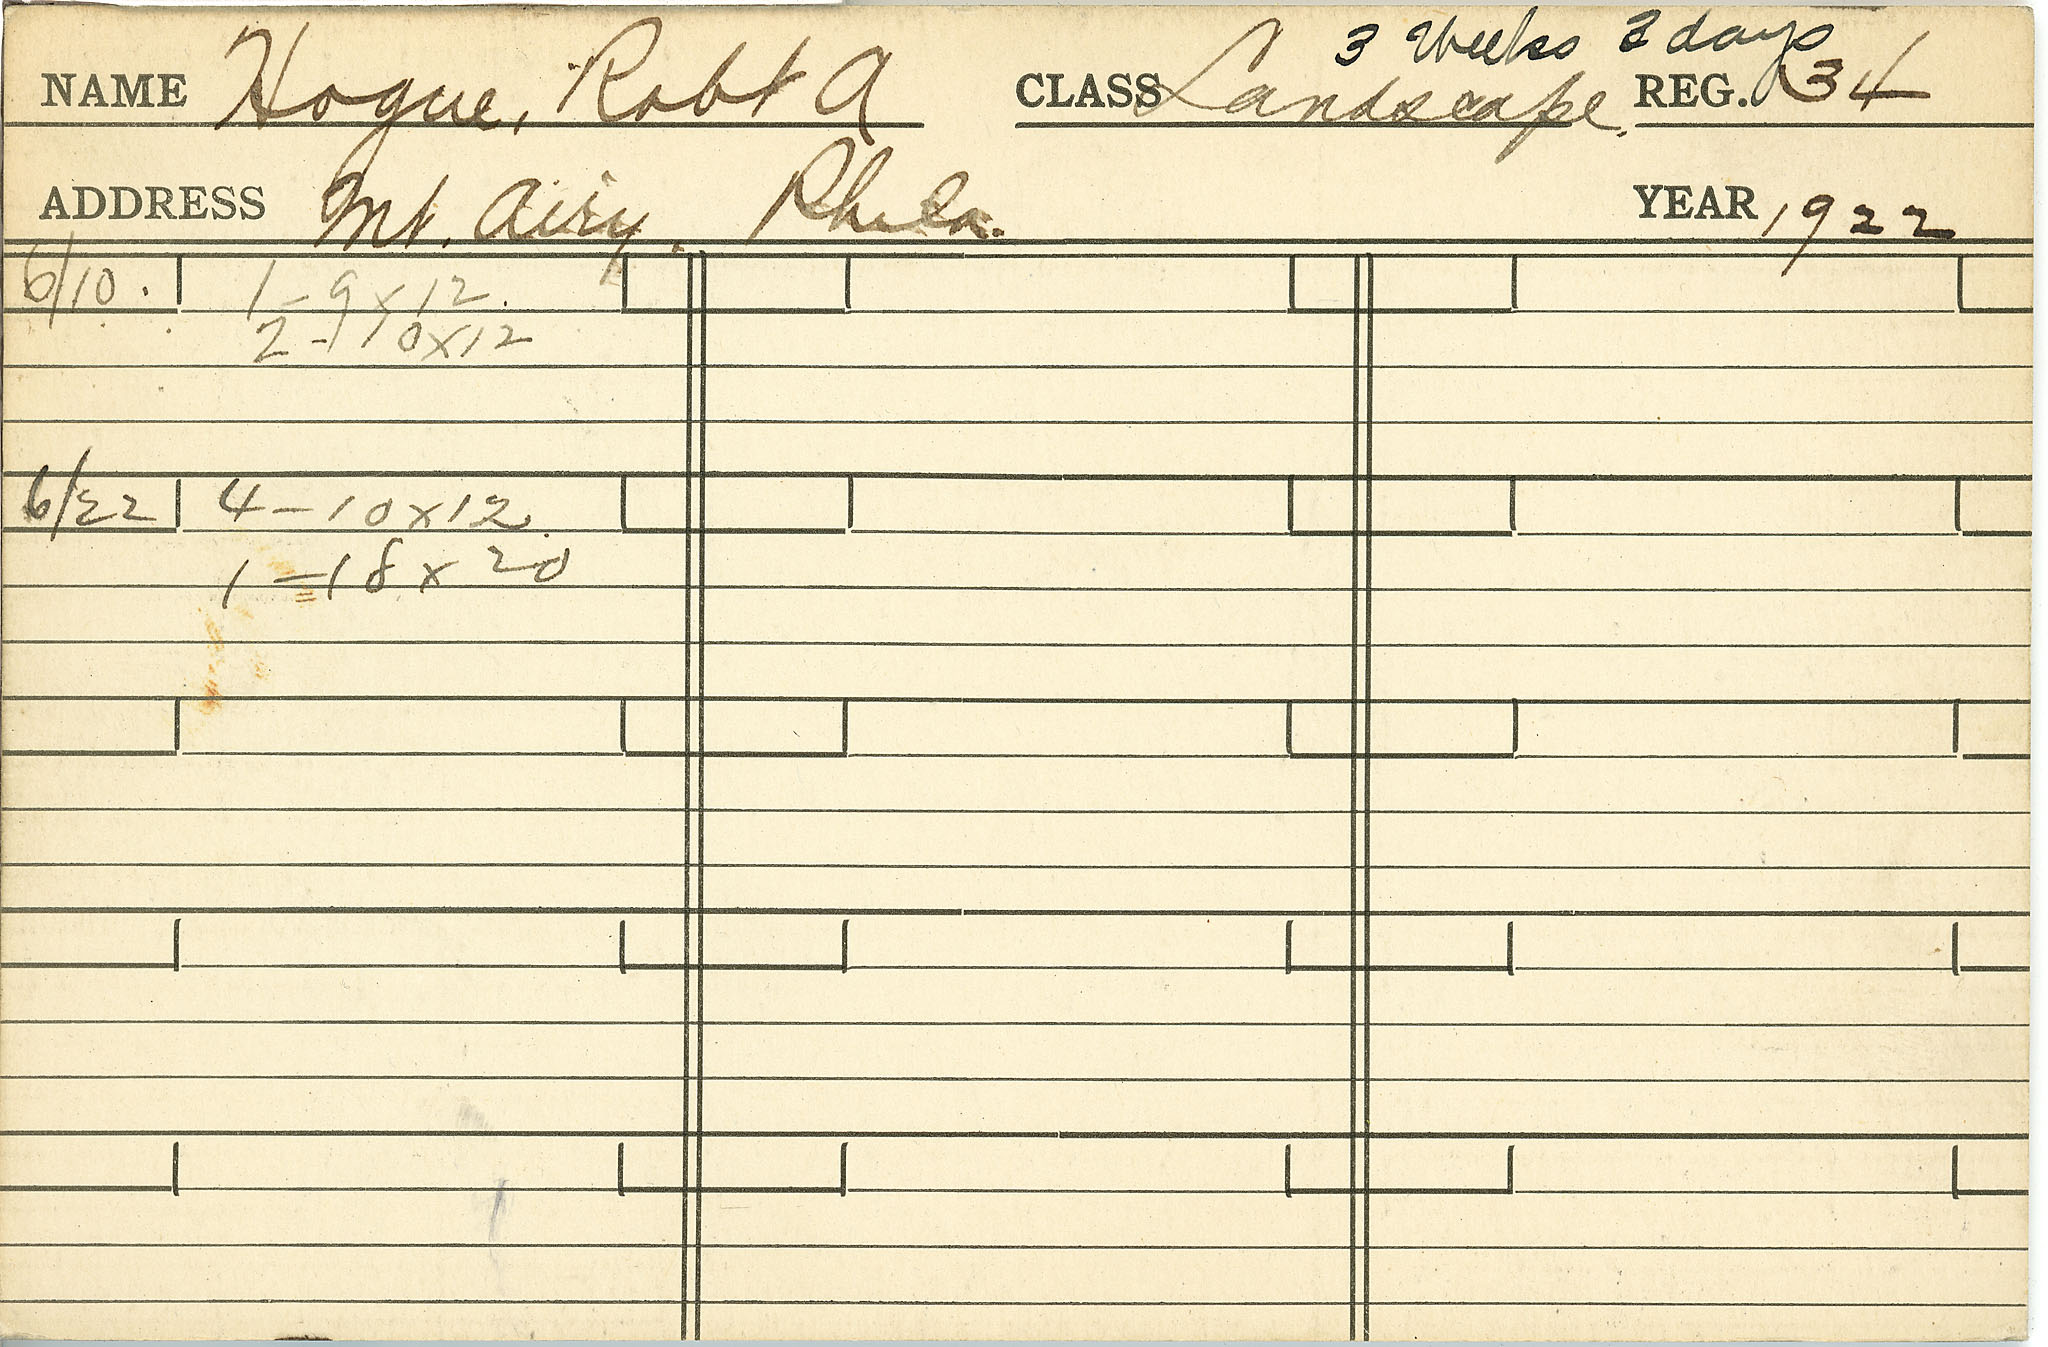 3 Weeks 3 days
NAME Hogue, Robt A CLASS Landscape. REG. 34
ADDRESS Mt. Airy. Phila. YEAR 1922
6/10. 1-9x12.
2-10x12
6/22 4-10x12
1-18x20